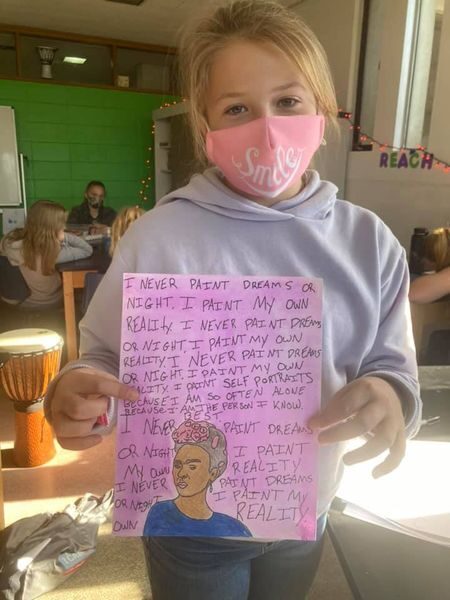 Smile
REACH
I NEVER PAINT DREAMS OR
NIGHT. I PAINT MY OWN
REALITY. I NEVER PAINT DREAMS
OR NIGHT I PAINT MY OWN
REALITY. I NEVER PAINT DREAMS
OR NIGHT, I PAINT MY OWN
REALITY I PAINT SELF PORTRAITS
BECAUSE I AM SO OFTEN ALONE
BECAUSE I AM THE PERSON I KNOW.
BEST
I NEVER PAINT DREAMS
OR NIGHT I PAINT
MY OWN REALITY
I NEVER PAINT DREAMS
OR NIGHT I PAINT MY
OWN REALITY